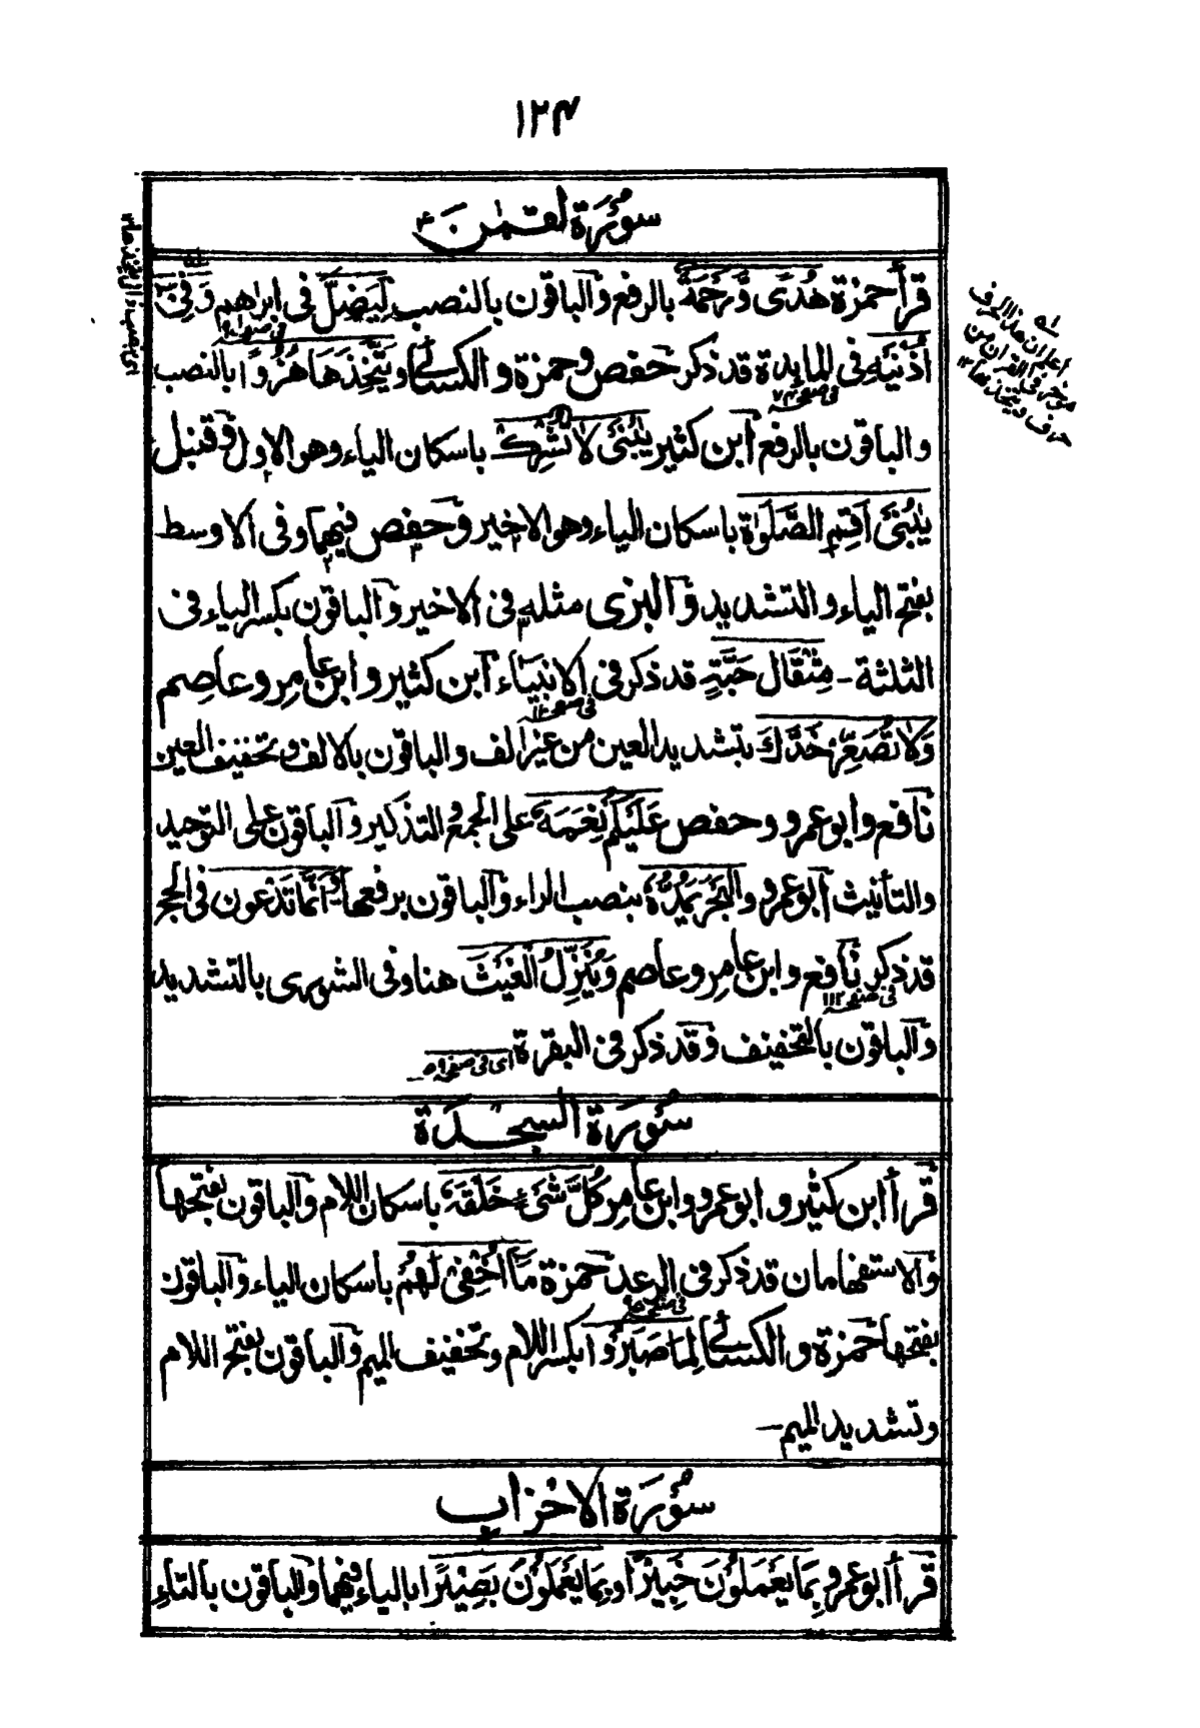 ١٢٤
سُوْرَةُ لُقْمٰنَ
قرأ حمزة هُدًى وَّرَحْمَةٌ بالرفع والباقون بالنصب لِيَضِلَّ فى ابراهيم وَفِىْٓ
فى صفحه
اُذُنَيْهِ فى المايدة قد ذكر حفص وحمزة والكسائى وَيَتَّخِذَهَا هُزُوًا بالنصب
فى صفحه ٧٤
والباقون بالرفع ابن كثير يٰبُنَىْ لَا تُشْرِكْ باسكان الياء وهو الاول وقنبل
يٰبُنَىْ اَقِمِ الصَّلٰوةَ باسكان الياء وهو الاخير وحفص فيهما وفى الاوسط
بفتح الياء والتشديد والبزى مثله فى الاخير والباقون بكسر الياء فى
الثلثة - مِثْقَالَ حَبَّةٍ قد ذكر فى الانبياء ابن كثير وابن عامر وعاصم
فى صفحه
وَلَا تُصَعِّرْ خَدَّكَ بتشديد العين من غير الف والباقون بالالف وتخفيف العين
نافع وابو عمرو وحفص عَلَيْكُمْ نِعَمَهٗ على الجمع والتذكير والباقون على التوحيد
والتأنيث ابو عمرو وَالْبَحْرَ يَمُدُّهٗ بنصب الراء والباقون برفعها وَاَنَّمَا تَدْعُون فى الحج
قد ذكر نافع وابن عامر وعاصم وَيُنَزِّلُ الْغَيْثَ هنا وفى الشورى بالتشديد
فى صفحه ١١٢
والباقون بالتخفيف وقد ذكر فى البقرة اى فى صفحه ٥٩
سُوْرَةُ السجدة
قرأ ابن كثير وابو عمرو وابن عامر كُلَّ شَىْءٍ خَلْقَهٗ باسكان اللام والباقون بفتحها
والاستفهامان قد ذكر فى الرعد حمزة مَّآ اُخْفِىْ لَهُمْ باسكان الياء والباقون
فى صفحه ٩٥
بفتحها حمزة والكسائى لِمَا صَبَرُوْا بكسر اللام وتخفيف الميم والباقون بفتح اللام
وتشديد الميم -
سُوْرَةُ الاحزاب
قرأ ابو عمرو بِمَا يَعْمَلُوْنَ خَبِيْرًا وبِمَا يَعْمَلُوْنَ بَصِيْرًا بالياء فيهما والباقون بالتاء